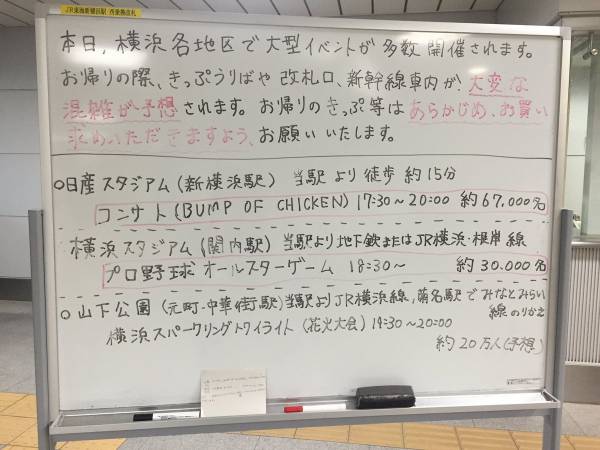 JR東海新横浜駅 西乗換改札
本日、横浜各地区で大型イベントが多数開催されます。
お帰りの際、きっぷうりばや改札口、新幹線車内が、大変な
混雑が予想されます。お帰りのきっぷ等はあらかじめ、お買い
求めいただきますよう、お願いいたします。
○日産スタジアム(新横浜駅) 当駅より徒歩約15分
コンサト(BUMP OF CHICKEN) 17:30~20:00 約67,000名
横浜スタジアム(関内駅) 当駅より地下鉄またはJR横浜・根岸線
プロ野球オールスターゲーム 18:30~ 約30,000名
○山下公園(元町・中華街駅)当駅よりJR横浜線,菊名駅でみなとみらい
線のりかえ
横浜スパークリングトワイライト(花火大会) 19:30~20:00
約20万人(予想)